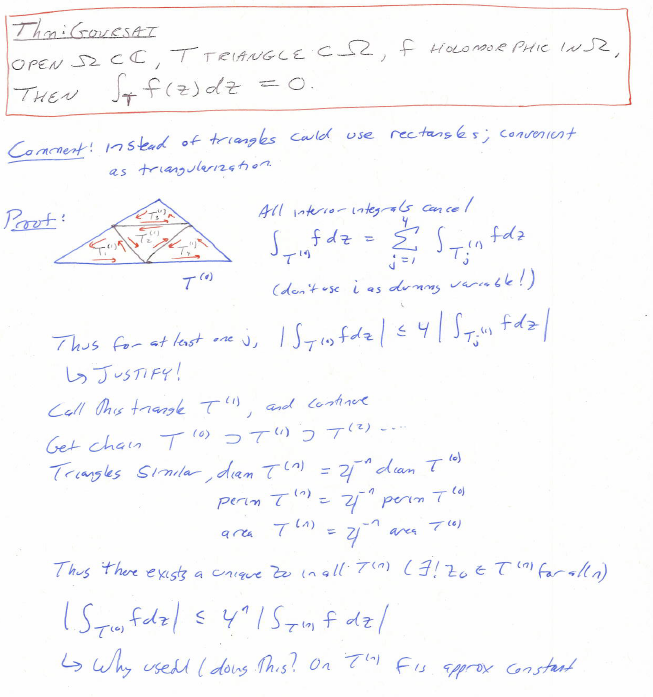 Thm: GOURSAT
OPEN Ω ⊂⊂ ℂ, T TRIANGLE ⊂ Ω, f HOLOMORPHIC IN Ω,
THEN ∫_T f(z)dz = 0.
Comment: instead of triangles could use rectangles; convenient
as triangularization.
Proof:
T₃⁽¹⁾
T₁⁽¹⁾ T₂⁽¹⁾ T₄⁽¹⁾
T⁽⁰⁾
All interior integrals cancel
∫_{T⁽⁰⁾} f dz = Σ_{j=1}^{4} ∫_{T_j⁽¹⁾} f dz
(don't use i as dummy variable!)
Thus for at least one j, |∫_{T⁽⁰⁾} f dz| ≤ 4 |∫_{T_j⁽¹⁾} f dz|
↳ JUSTIFY!
Call this triangle T⁽¹⁾, and continue
Get chain T⁽⁰⁾ ⊃ T⁽¹⁾ ⊃ T⁽²⁾ ...
Triangles similar, diam T⁽ⁿ⁾ = 2⁻ⁿ diam T⁽⁰⁾
perim T⁽ⁿ⁾ = 2⁻ⁿ perim T⁽⁰⁾
area T⁽ⁿ⁾ = 4⁻ⁿ area T⁽⁰⁾
Thus there exists a unique z₀ in all T⁽ⁿ⁾ (∃! z₀ ∈ T⁽ⁿ⁾ for all n)
|∫_{T⁽⁰⁾} f dz| ≤ 4ⁿ |∫_{T⁽ⁿ⁾} f dz|
↳ Why useful / doing this? On T⁽ⁿ⁾ f is approx constant